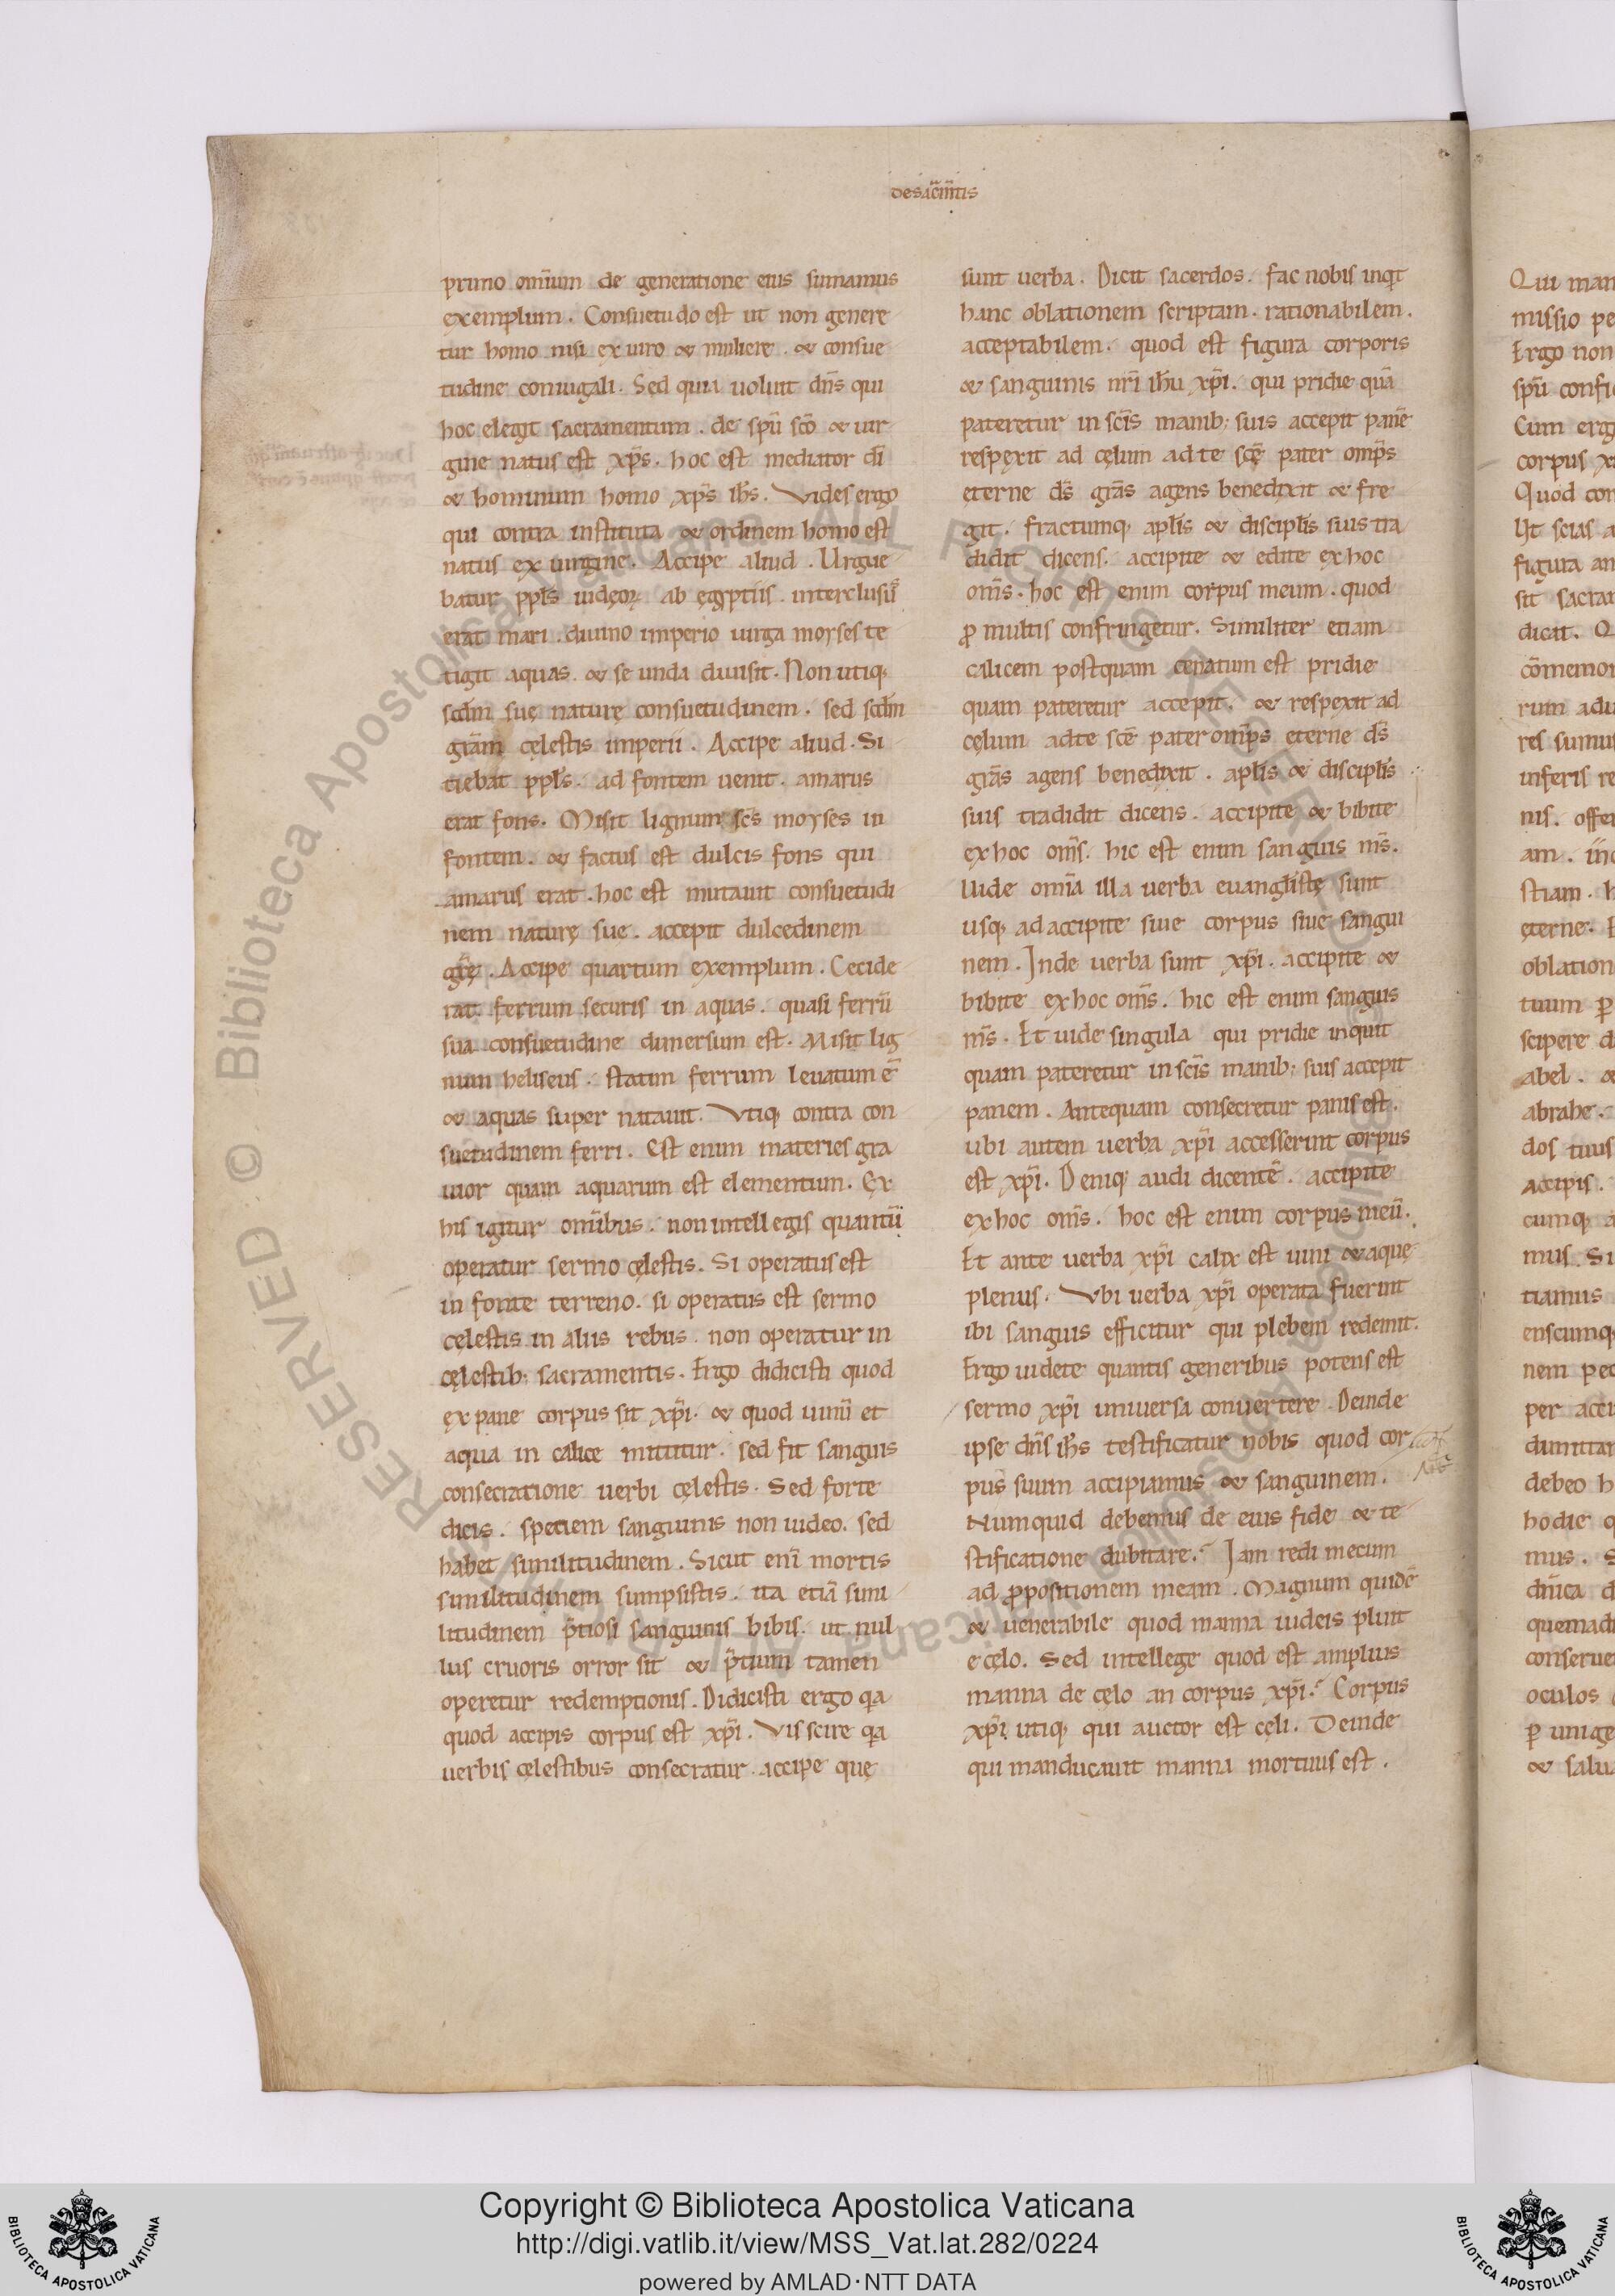 desac̄m̄tis
primo om̄ium de generatione eius sumamus
exemplum. Consuetudo est ut non genere
tur homo nisi ex uiro & muliere. & consue
tudine coniugali. Sed quia uoluit dn̄s qui
hoc elegit sacramentum. de sp̄u sc̄o & uir
gine natus est xp̄s. hoc est mediator dī
& hominum homo xp̄s ih̄s. Vides ergo
qui contra instituta & ordinem homo est
natus ex uirgine. Accipe aliud. Urgue
batur ppl̄s iudęoꝝ ab ęgyptiis. interclusū
erat mari. diuino imperio uirga moyses te
tigit aquas. & se unda diuisit. Non utiq;
scd̄m suę naturę consuetudinem. sed scd̄m
grām cęlestis imperii. Accipe aliud. Si
tiebat ppl̄s. ad fontem uenit. amarus
erat fons. Misit lignum sc̄s moyses in
fontem. & factus est dulcis fons qui
amarus erat. hoc est mutauit consuetudi
nem naturę sue. accepit dulcedinem
gr̄ę. Accipe quartum exemplum. Cecide
rat ferrum securis in aquas. quasi ferrū
sua consuetudine dimersum est. Misit lig
num heliseus. statim ferrum leuatum ē
& aquas super natauit. Vtiq; contra con
suetudinem ferri. Est enim materies gra
uior quam aquarum est elementum. Ex
his igitur om̄ibus. non intellegis quantū
operatur sermo cęlestis. Si operatus est
in fonte terreno. si operatus est sermo
cęlestis in aliis rebus. non operatur in
cęlestib; sacramentis. Ergo didicisti quod
ex pane corpus sit xp̄i. & quod uinū et
aqua in calice mittitur. sed fit sanguis
consecratione uerbi cęlestis. Sed forte
dicis. speciem sanguinis non uideo. sed
habet similitudinem. Sicut enī mortis
similitudinem sumpsistis. ita etiā simi
litudinem p̄tiosi sanguinis bibis. ut nul
lus cruoris orror sit & p̄tium tamen
operetur redemptionis. Didicisti ergo qa
quod accipis corpus est xp̄i. Vis scire qa
uerbis cęlestibus consecratur. accipe quę
sunt uerba. Dicit sacerdos. fac nobis inqt
hanc oblationem scriptam. rationabilem.
acceptabilem. quod est figura corporis
& sanguinis nr̄i ih̄u xp̄i. qui pridie quā
pateretur in sc̄is manib; suis accepit panē
respexit ad cęlum ad te sc̄ę pater omp̄s
eterne ds̄ grās agens benedixit & fre
git. fractumq; apl̄is & discipl̄is suis tra
didit dicens. accipite & edite ex hoc
om̄s. hoc est enim corpus meum. quod
ꝓ multis confringetur. Similiter etiam
calicem postquam cenatum est pridie
quam pateretur accepit. & respexit ad
cęlum ad te sc̄e pater omp̄s eterne ds̄
grās agens benedixit. apl̄is & discipl̄is
suis tradidit dicens. accipite & bibite
ex hoc om̄s. hic est enim sanguis m̄s.
Uide om̄ia illa uerba euangl̄istę sunt
usq; ad accipite siue corpus siue sangui
nem. Inde uerba sunt xp̄i. accipite &
bibite ex hoc om̄s. hic est enim sanguis
m̄s. Et uide singula qui pridie inquit
quam pateretur in sc̄is manib; suis accepit
panem. Antequam consecretur panis est.
ubi autem uerba xp̄i accesserint corpus
est xp̄i. Deniq; audi dicentē. accipite
ex hoc om̄s. hoc est enim corpus meū.
Et ante uerba xp̄i calix est uini & aque
plenus. Vbi uerba xp̄i operata fuerint
ibi sanguis efficitur qui plebem redemit.
Ergo uidete quantis generibus potens est
sermo xp̄i uniuersa conuertere. Deinde
ipse dn̄s ih̄s testificatur nobis quod cor
pus suum accipiamus & sanguinem.
Numquid debemus de eius fide & te
stificatione dubitare. Iam redi mecum
ad ꝓpositionem meam. Magnum quidē
& uenerabile quod manna iudeis pluit
e cęlo. Sed intellege quod est amplius
manna de cęlo an corpus xp̄i. Corpus
xp̄i utiq; qui auctor est cęli. Deinde
qui manducauit manna mortuus est.
Qui man
missio pe
Ergo non
sp̄u confi
Cum erg
corpus x
Quod con
Ut scias a
figura an
sit sacra
dicat. Q
cōmemor
rum adu
res sumu
inferis re
nis. offe
am.
stiam. h
ęterne. 
oblation
tuum ꝑ
scipere d
abel. &
abrahe.
dos tuus
Accipis.
cumq; a
mus. Si
tiamus
enscumq;
nem pec
per acci
dimittan
debeo h
hodie q
mus. S
dn̄ica d
quemad
conserue
oculos
ꝑ unige
& salua
RESERVED © Biblioteca Apostolica Vaticana ALL RIGHTS RESERVED © Biblioteca Apostolica Vaticana ALL RIGHTS
BIBLIOTECA APOSTOLICA VATICANA
Copyright © Biblioteca Apostolica Vaticana
http://digi.vatlib.it/view/MSS_Vat.lat.282/0224
powered by AMLAD·NTT DATA
BIBLIOTECA APOSTOLICA VATICANA